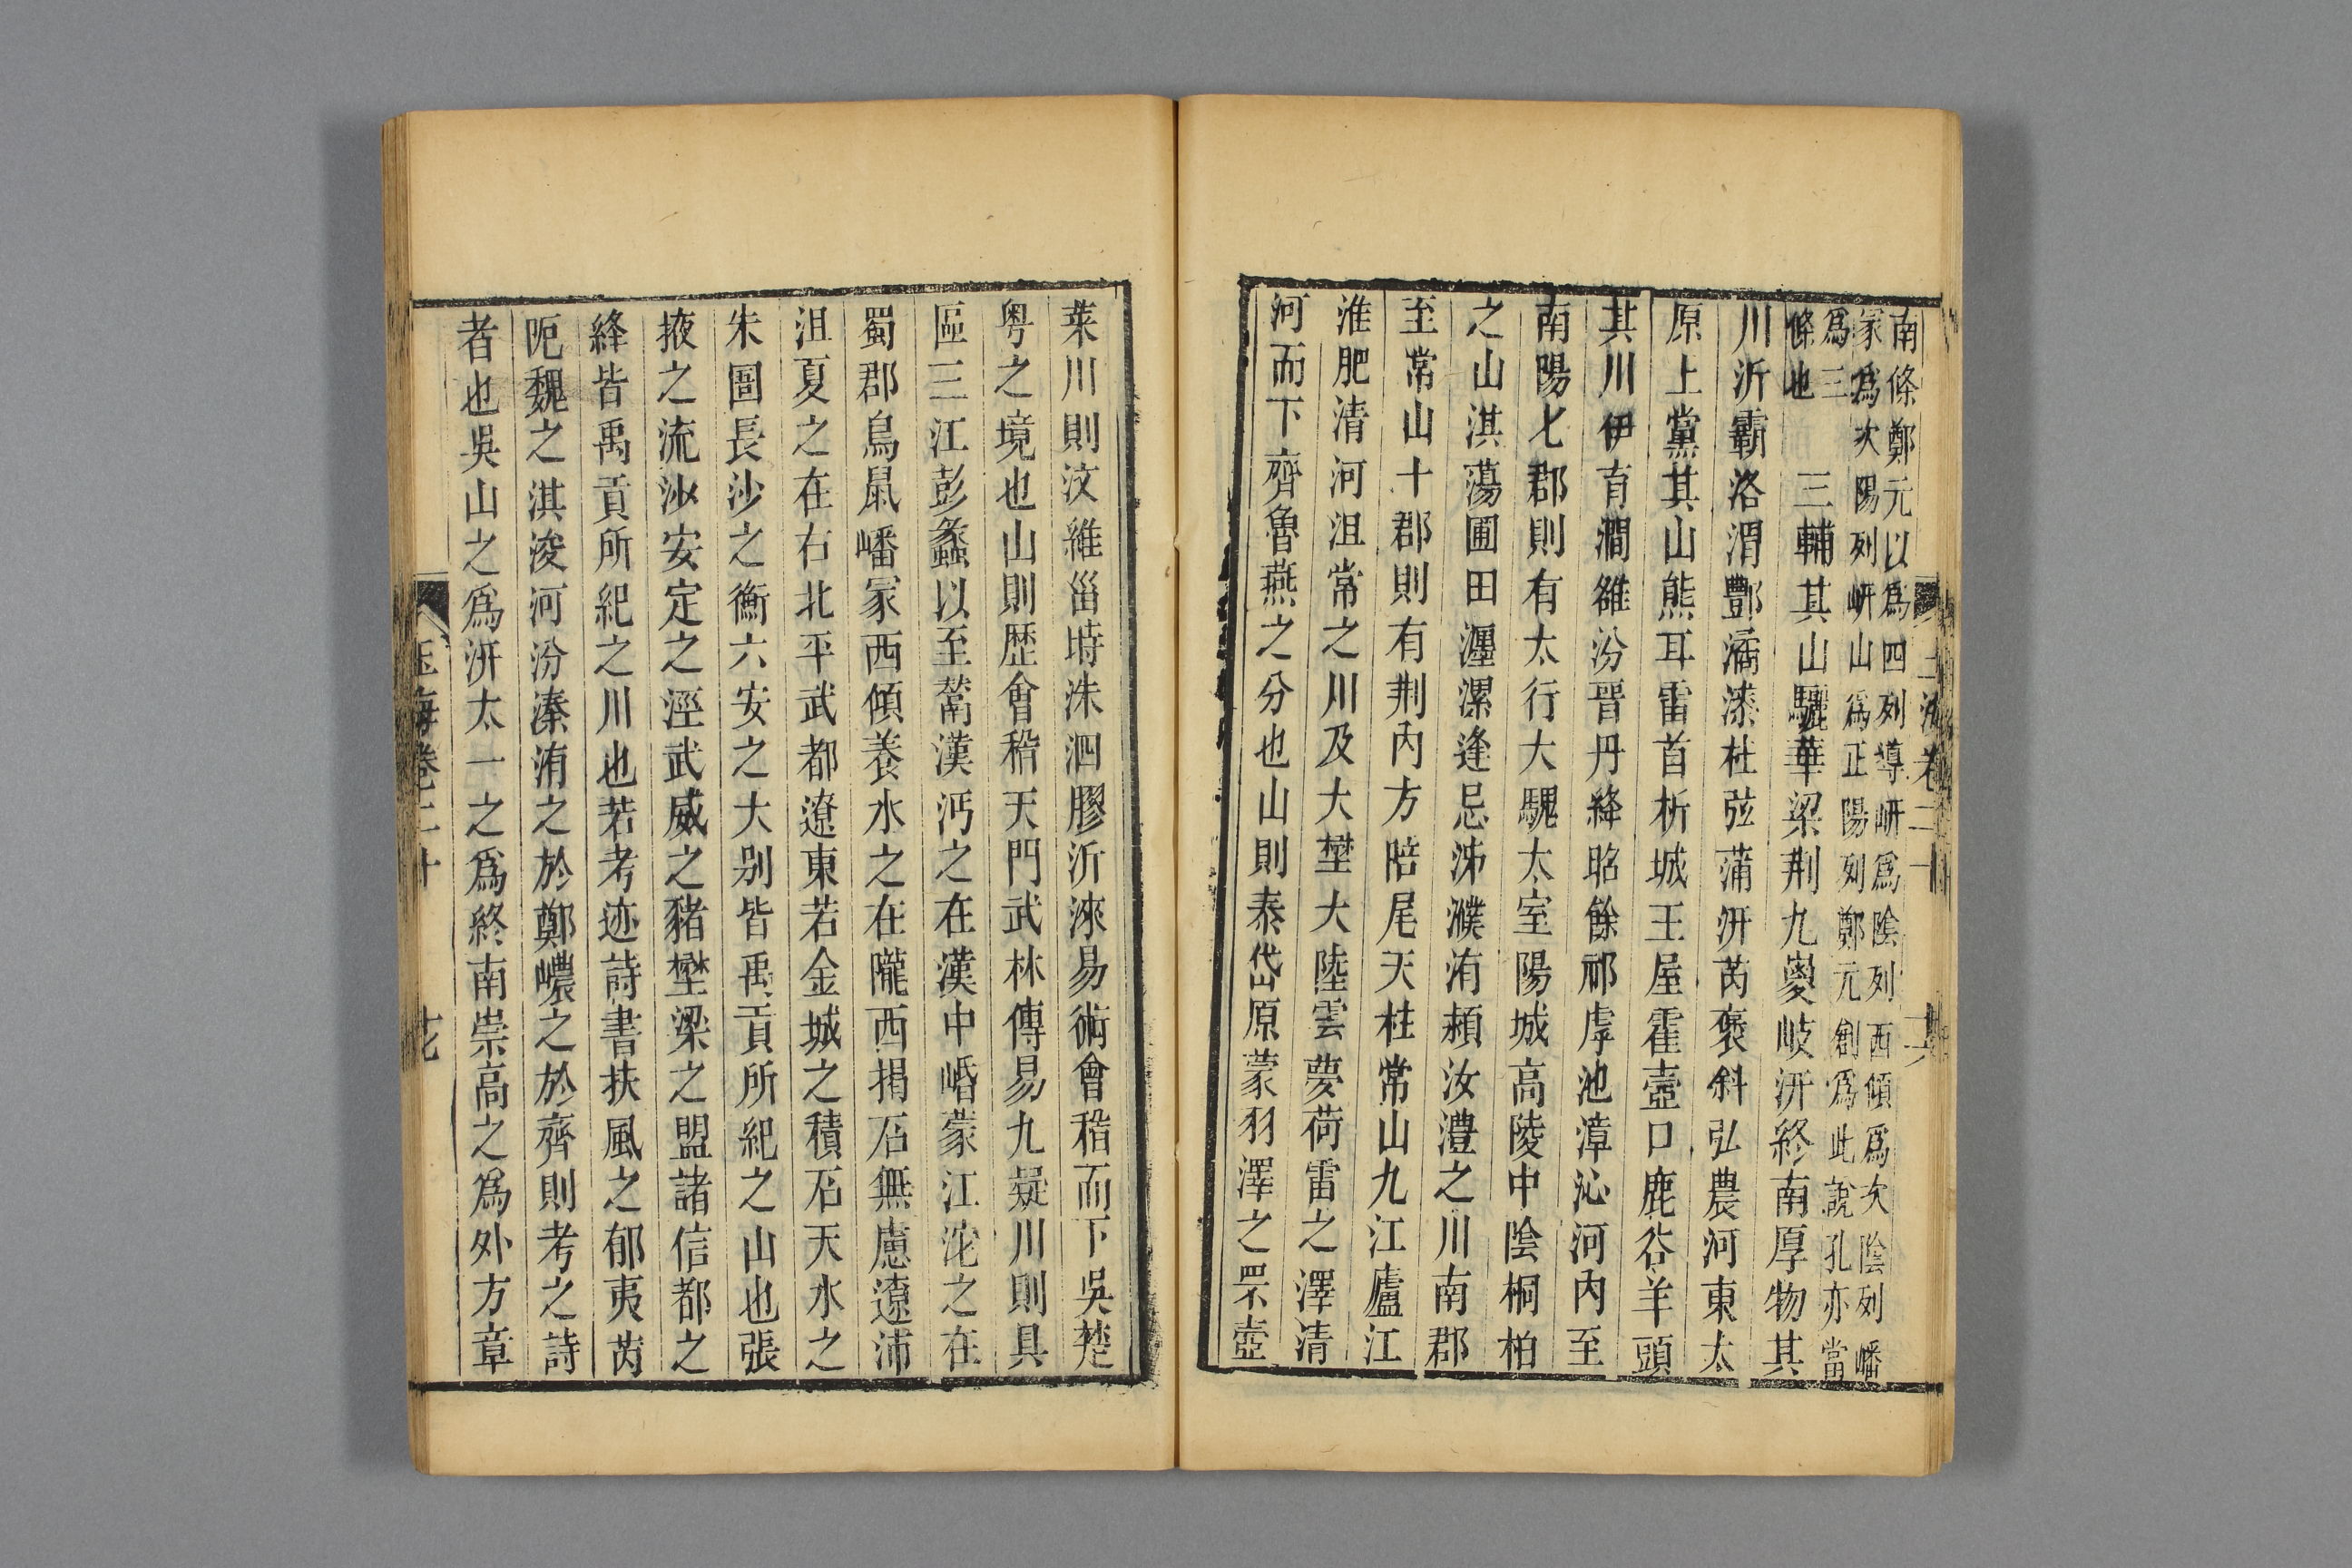 玉海卷二十
南條鄭元以爲四列導岍爲陰列西傾爲次陰列嶓
冢爲次陽列岍山爲正陽列鄭元創爲此說孔亦當
爲三
條也
三輔其山驪華梁荆九嵏岐汧終南厚物其
川沂霸洛渭酆潏漆杜弦蒲汧芮褒斜弘農河東太
原上黨其山熊耳雷首析城王屋霍壺口鹿谷羊頭
其川伊育澗雒汾晉丹絳昭餘祁虖池漳沁河內至
南陽七郡則有太行大騩太室陽城高陵中陰桐柏
之山淇蕩圃田瀍漯逢忌沛濮洧潁汝澧之川南郡
至常山十郡則有荆內方陪尾天柱常山九江廬江
淮肥清河沮常之川及大壄大陸雲夢荷雷之澤清
河而下齊魯燕之分也山則泰岱原蒙羽澤之罘壺
萊川則汶維甾時洙泗膠沂淶易術會稽而下吳楚
粤之境也山則歷會稽天門武林傅易九疑川則具
區三江彭蠡以至蒿漢沔之在漢中崏蒙江沱之在
蜀郡鳥鼠嶓冢西傾養水之在隴西揭石無慮遼沛
沮夏之在右北平武都遼東若金城之積石天水之
朱圄長沙之衡六安之大别皆禹貢所紀之山也張
掖之流沙安定之涇武威之豬壄梁之盟諸信都之
絳皆禹貢所紀之川也若考迹詩書扶風之郁夷芮
阨魏之淇浚河汾溱洧之於鄭峱之於齊則考之詩
者也吳山之爲汧太一之爲終南崇高之爲外方章
玉海卷二十